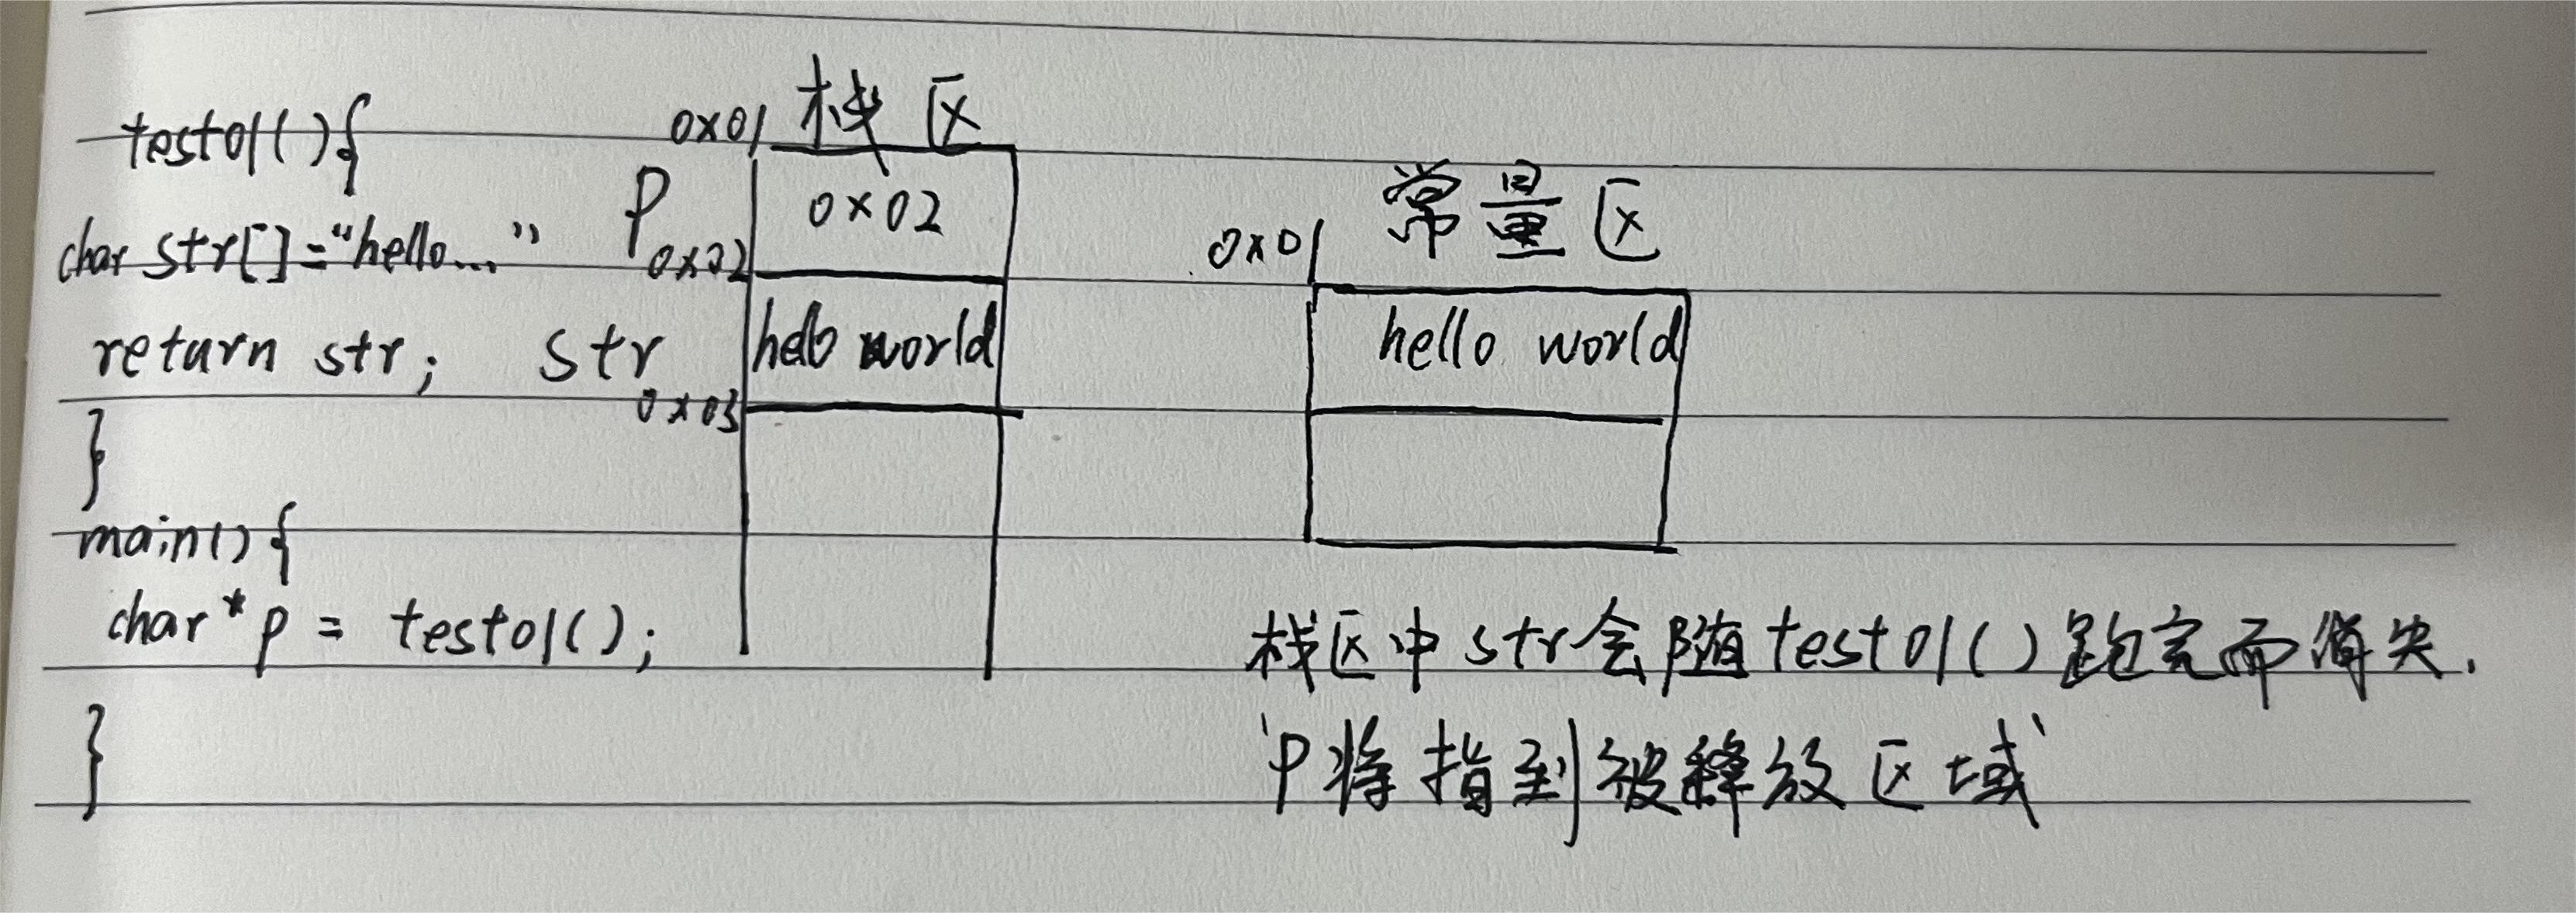 test01(){
char str[]="hello..."
return str;
}
main(){
char* p = test01();
}
栈区
0x01
P
0x02
0x02
str
hello world
0x03
常量区
0x01
hello world
栈区中str会随test01()跑完而消失.
P将指到被释放区域